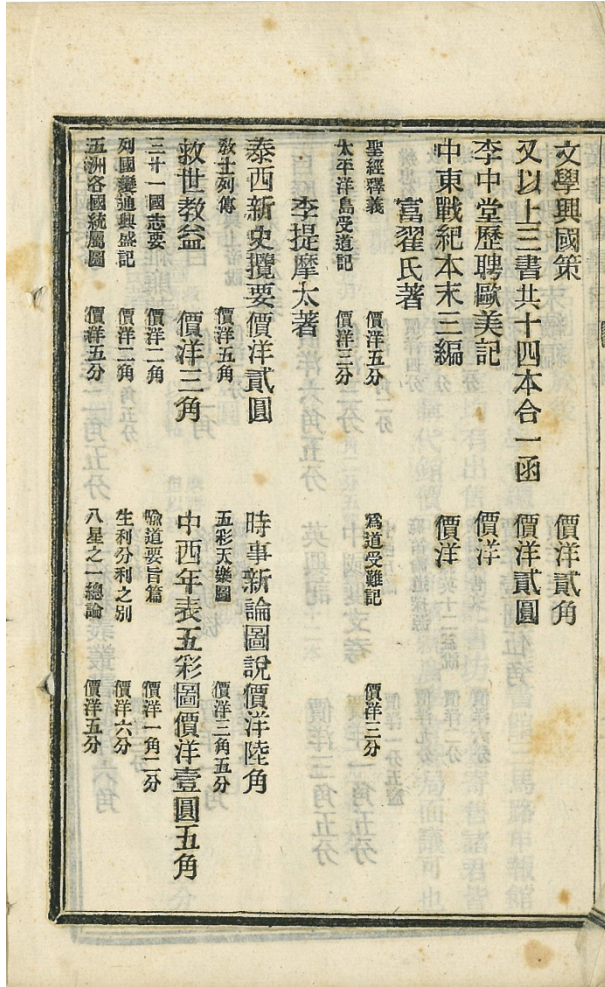 文學興國策　價洋貳角
又以上三書共十四本合一函　價洋貳圓
李中堂歷聘歐美記　價洋
中東戰紀本末三編　價洋
富翟氏著
聖經釋義　價洋五分　爲道受難記　價洋三分
太平洋島受道記　價洋三分
李提摩太著
泰西新史攬要價洋貳圓　時事新論圖說價洋陸角
教士列傳　價洋五角　五彩天樂圖　價洋三角五分
救世教益　價洋三角　中西年表五彩圖價洋壹圓五角
三十一國志要　價洋二角　喻道要旨篇　價洋一角二分
列國變通興盛記　價洋二角　生利分利之別　價洋六分
五洲各國統屬圖　價洋五分　八星之一總論　價洋五分